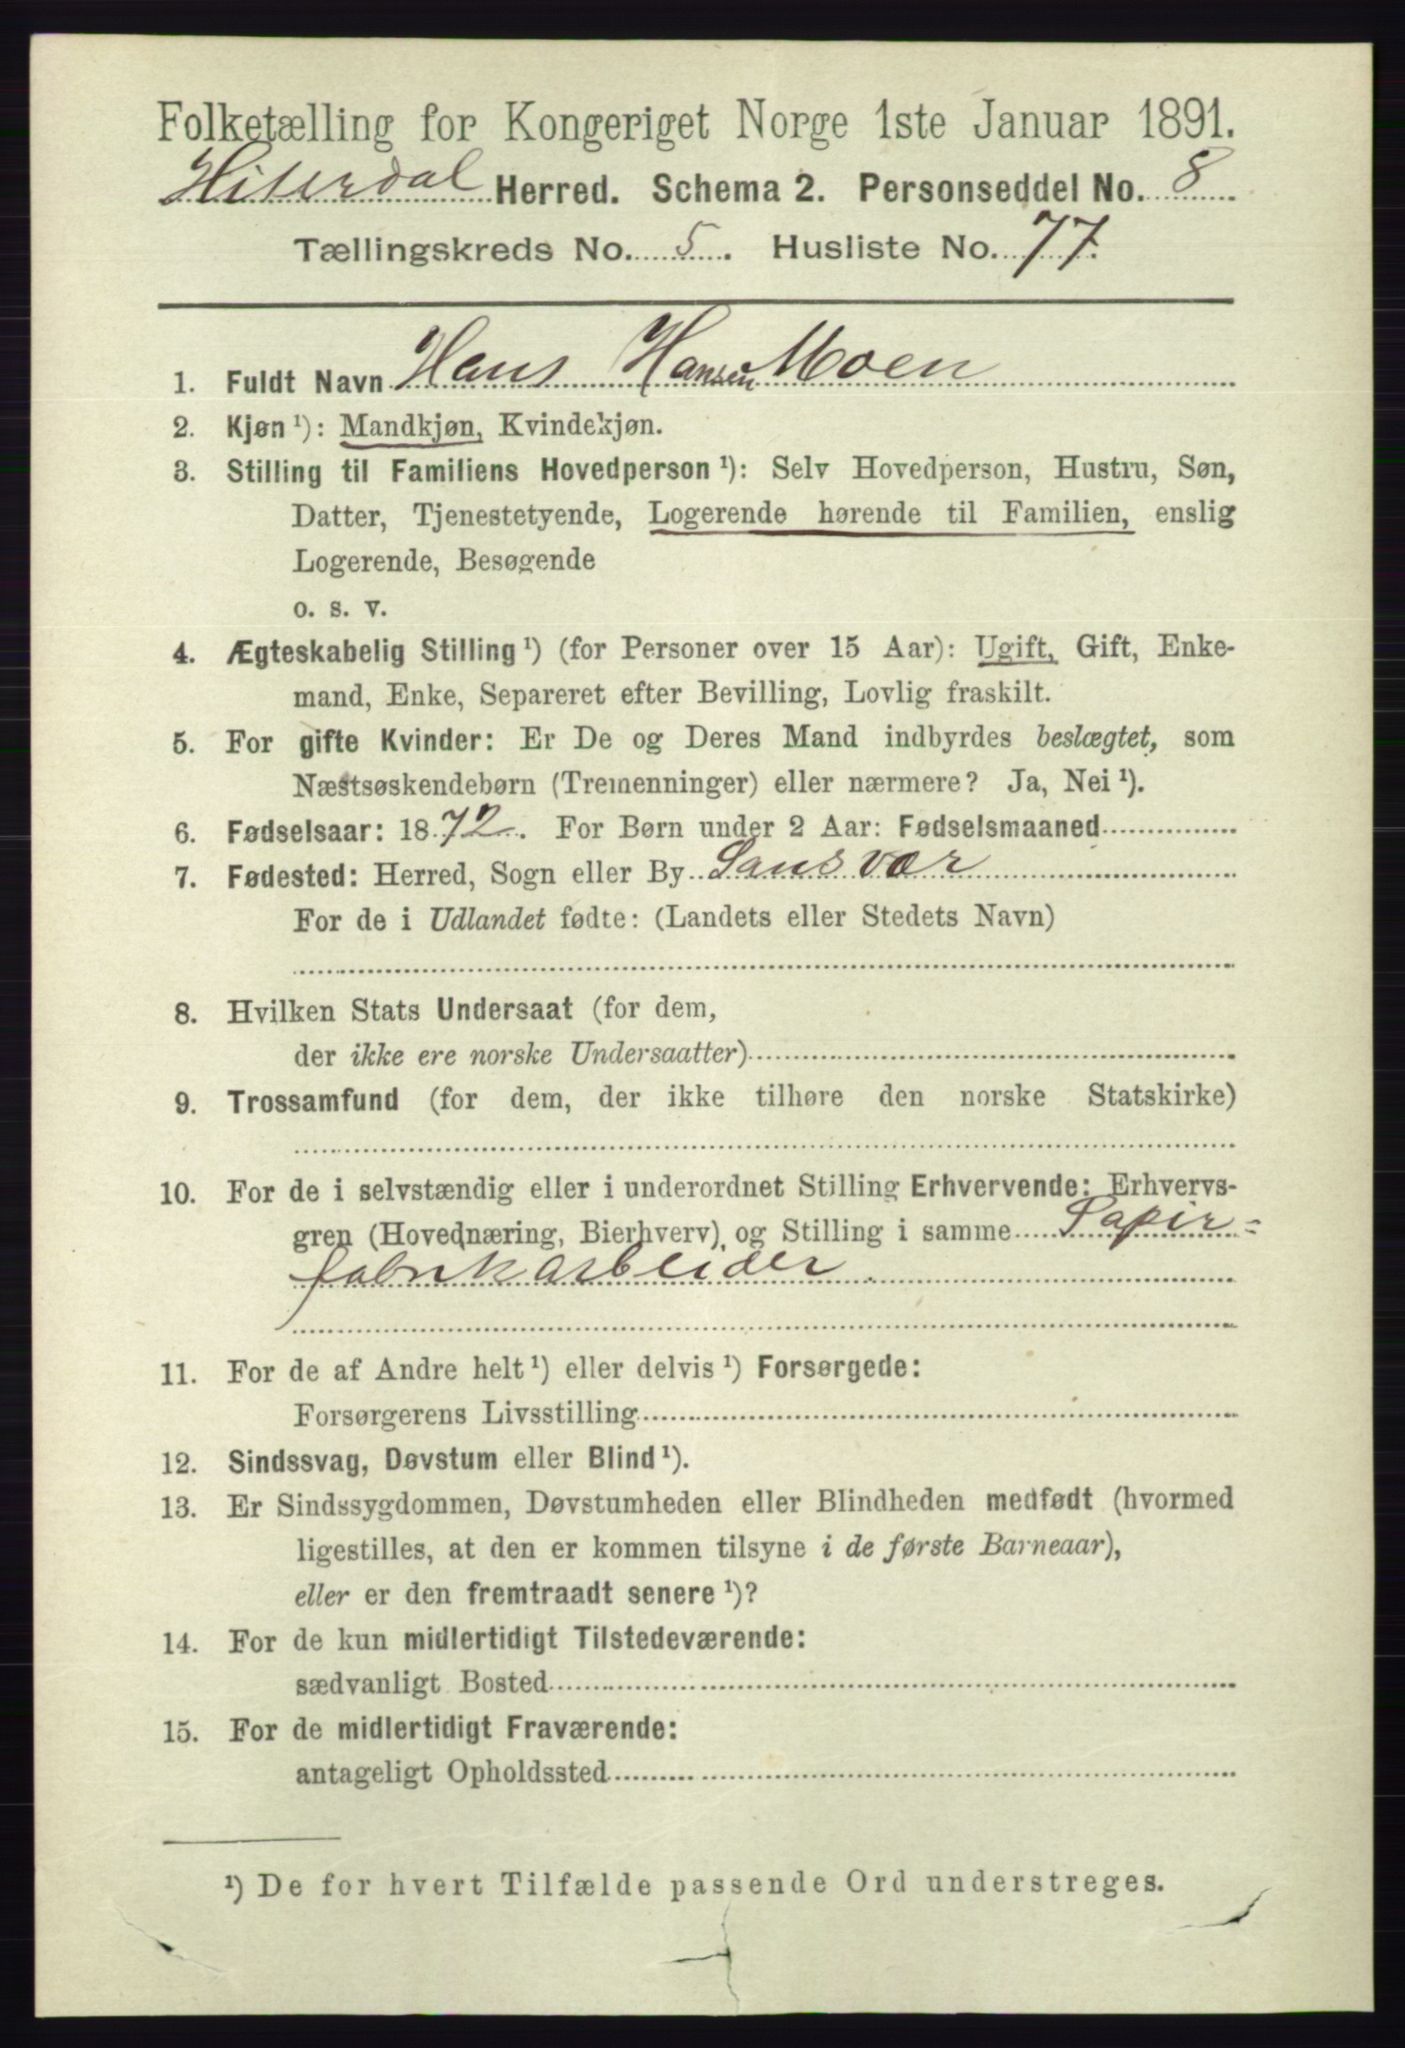 Folketælling for Kongeriget Norge 1ste Januar 1891.
Hiterdal Herred. Schema 2. Personseddel No. 8
Tællingskreds No. 5. Husliste No. 77.
1. Fuldt Navn Hans Hansen Moen
2. Kjøn ¹): Mandkjøn, Kvindekjøn.
3. Stilling til Familiens Hovedperson ¹): Selv Hovedperson, Hustru, Søn,
Datter, Tjenestetyende, Logerende hørende til Familien, enslig
Logerende, Besøgende
o. s. v.
4. Ægteskabelig Stilling ¹) (for Personer over 15 Aar): Ugift, Gift, Enke-
mand, Enke, Separeret efter Bevilling, Lovlig fraskilt.
5. For gifte Kvinder: Er De og Deres Mand indbyrdes beslægtet, som
Næstsøskendebørn (Tremenninger) eller nærmere? Ja, Nei ¹).
6. Fødselsaar: 1872. For Børn under 2 Aar: Fødselsmaaned
7. Fødested: Herred, Sogn eller By Sansvær
For de i Udlandet fødte: (Landets eller Stedets Navn)
8. Hvilken Stats Undersaat (for dem,
der ikke ere norske Undersaatter)
9. Trossamfund (for dem, der ikke tilhøre den norske Statskirke)
10. For de i selvstændig eller i underordnet Stilling Erhvervende: Erhvervs-
gren (Hovednæring, Bierhverv) og Stilling i samme Papir=
fabrikarbeider
11. For de af Andre helt ¹) eller delvis ¹) Forsørgede:
Forsørgerens Livsstilling
12. Sindssvag, Døvstum eller Blind ¹).
13. Er Sindssygdommen, Døvstumheden eller Blindheden medfødt (hvormed
ligestilles, at den er kommen tilsyne i de første Barneaar),
eller er den fremtraadt senere ¹)?
14. For de kun midlertidigt Tilstedeværende:
sædvanligt Bosted
15. For de midlertidigt Fraværende:
antageligt Opholdssted
¹) De for hvert Tilfælde passende Ord understreges.